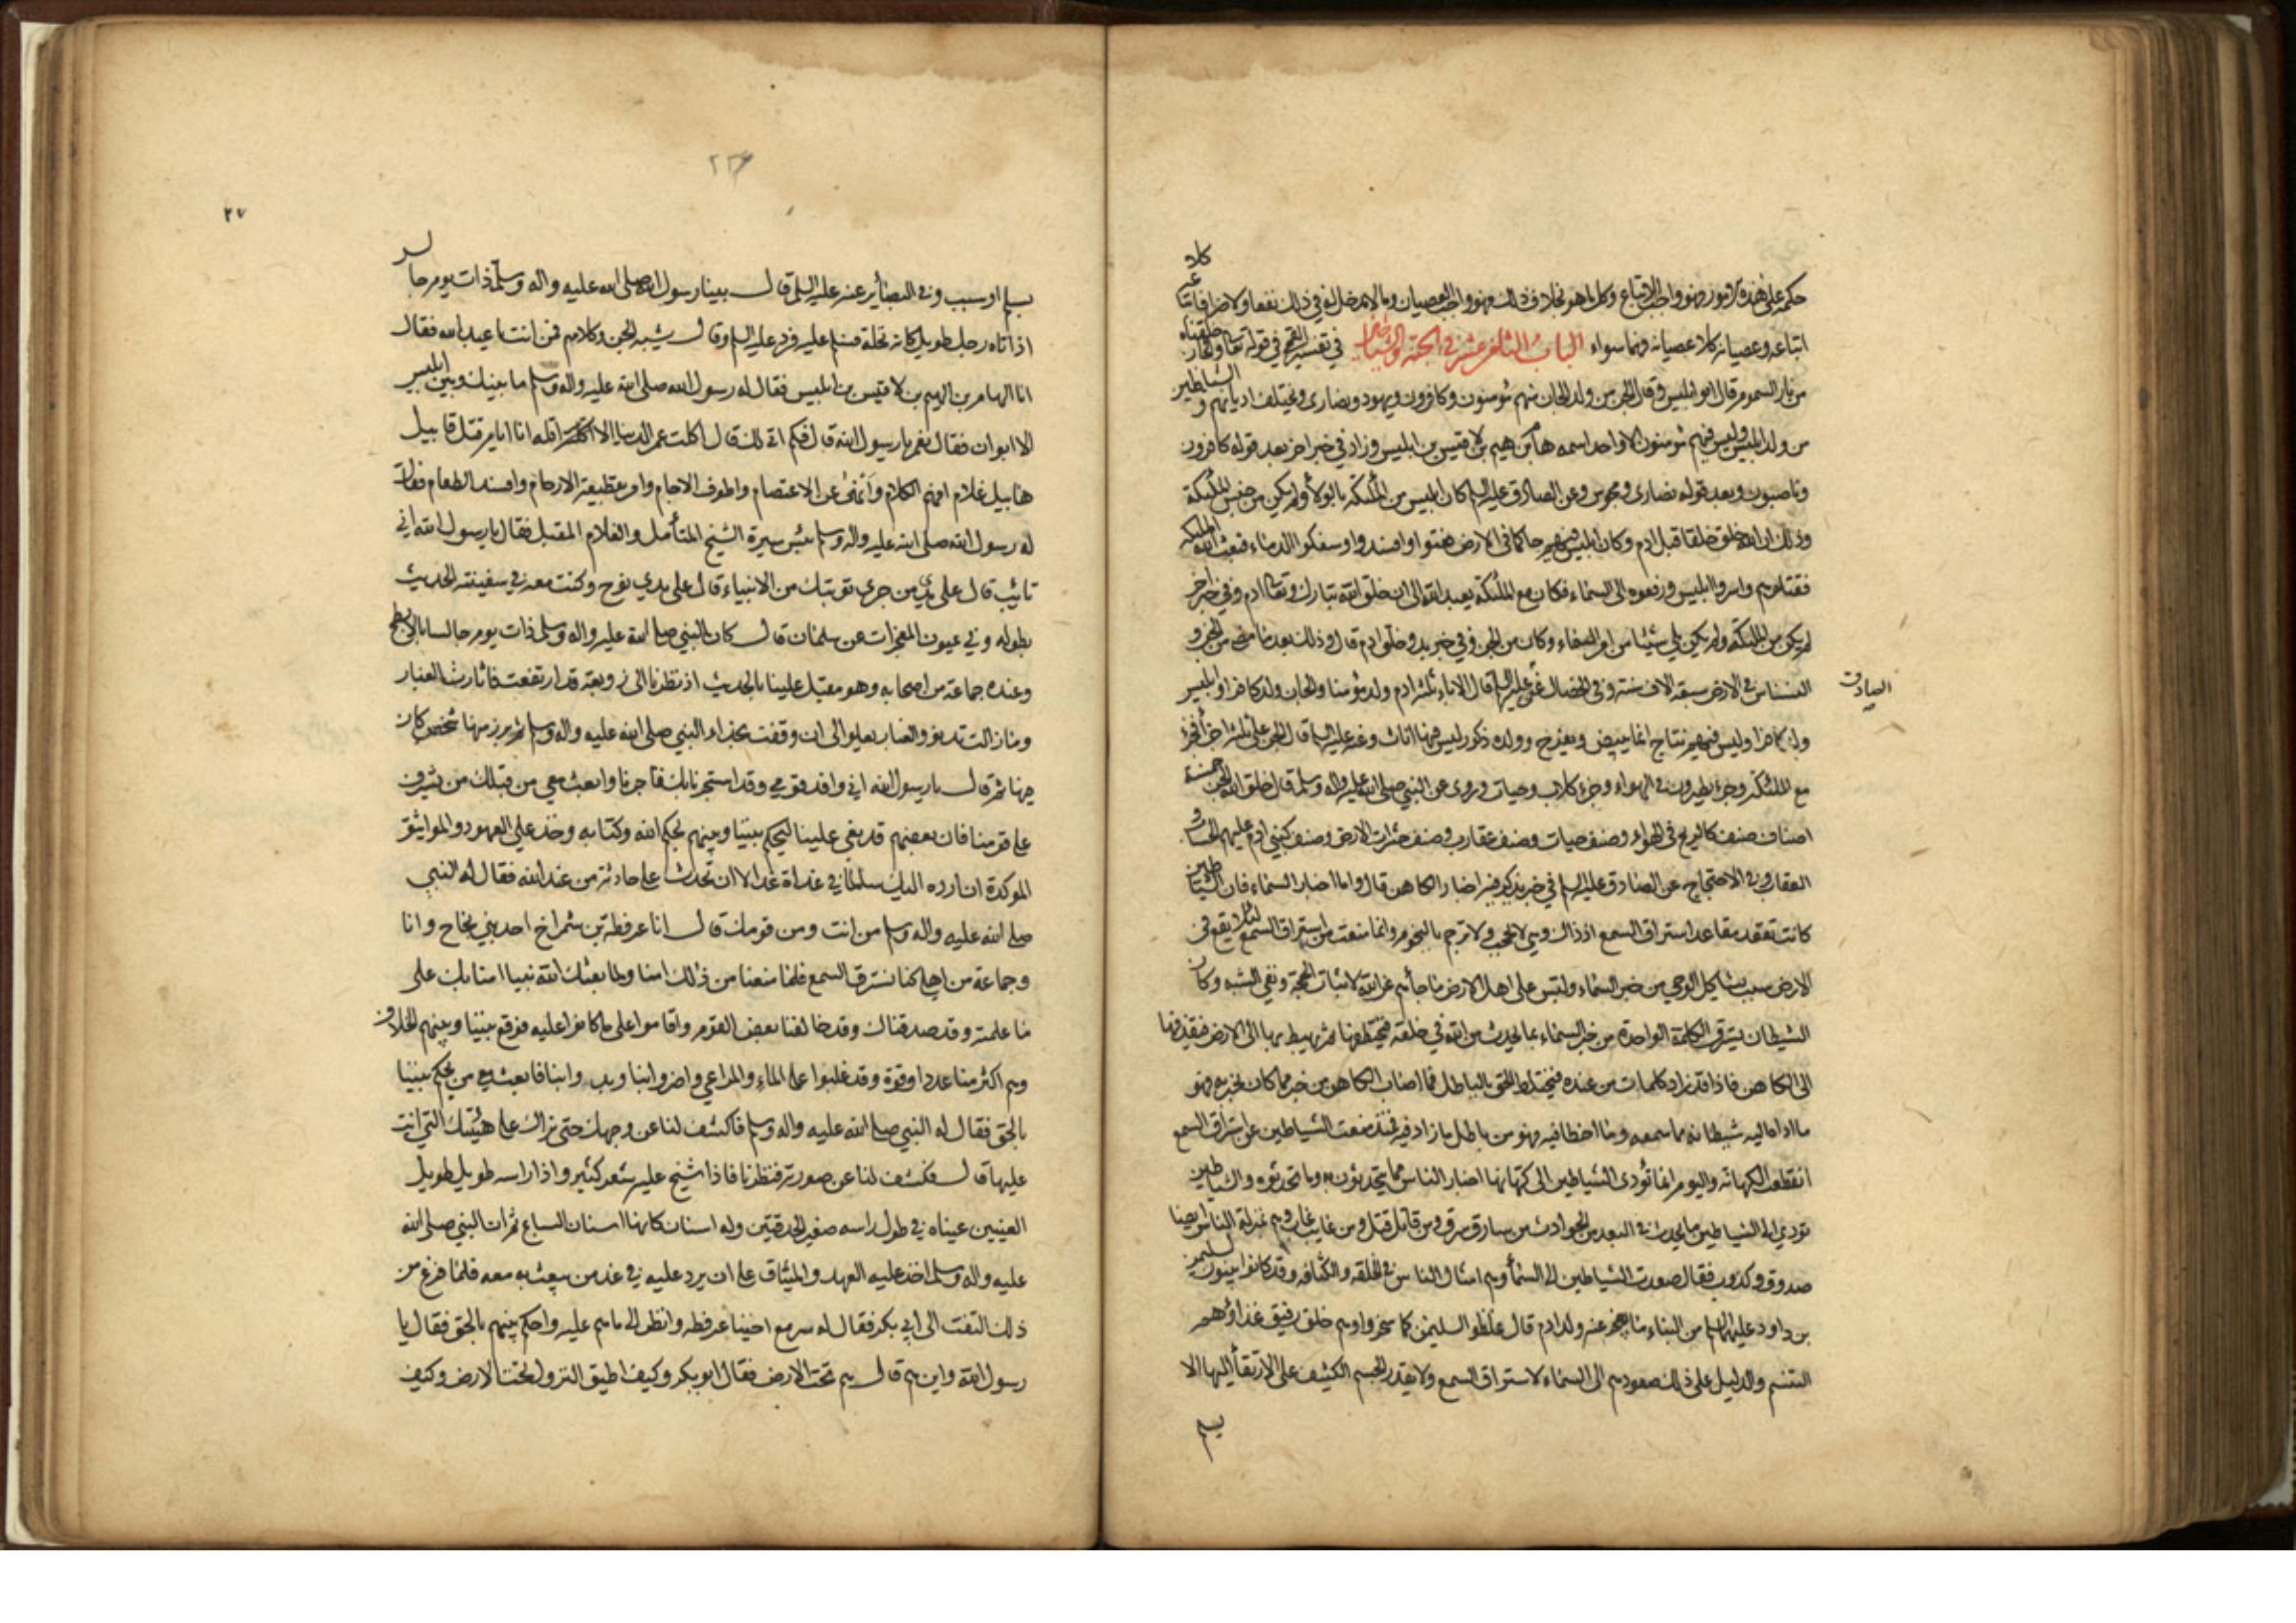 حكمه على هذه الامور فهو واجب الاتباع وكل ما هو بخلاف ذلك فهو واجب العصيان وما لا مدخل له في ذلك نفعا ولا ضرا فانما كلا
اتباعه وعصيانه كلا عصيانه فيهما سواء الباب الثامن عشر في الجنة والشياطين في تفسير القمي في قوله تعا والجان خلقناه
من نار السموم قال ابو ابليس وقال الجن من ولد الجان منهم مؤمنون وكافرون ويهود ونصارى ويختلف اديانهم و الشياطين
من ولد ابليس وليس فيهم مؤمنون الا واحد اسمه هام بن هيم بن لاقيس بن ابليس وزاد في خبر اخر بعد قوله كافرون
وناصبون وبعد قوله نصارى ومجوس وعن الصادق عليه السلم كان ابليس من الملئكة بالولاء ولم يكن من جنس الملئكة
وذلك ان الله خلق خلقا قبل ادم وكان ابليس فيهم حاكما في الارض فعتوا وافسدوا وسفكوا الدماء فبعث الله الملئكة
فقتلوهم واسروا ابليس ورفعوه الى السماء فكان مع الملئكة يعبد الله الى ان خلق الله تبارك وتعا ادم وفي خبر اخر
لم يكن من الملئكة ولم يكن يلي شيئا من امر السماء وكان من الجن وفي خبر بدو خلق ادم قال وذلك بعد ما مضى من الجن و
النسناس في الارض سبعة الاف سنة وفي الخصال عن عليه السلم قال الاباء ثلثة ادم ولد مؤمنا والجان ولد كافرا وابليس
الصادق
ولد كافرا وليس فيهم نتاج انما يبيض ويفرخ وولده ذكور ليس فيها اناث وعنه عليه السلم قال الجن على ثلثة اجزاء فجزء
مع الملئكة وجزء يطيرون في الهواء وجزء كلاب وحيات وروى عن النبي صلى الله عليه واله وسلم قال خلق الله الجن خمسة
اصناف صنف كالريح في الهواء وصنف حيات وصنف عقارب وصنف حشرات الارض وصنف كبني ادم عليهم الحساب و
العقاب وفي الاحتجاج عن الصادق عليه السلم في خبر يذكر فيه اخبار الكاهن قال واما اخبار السماء فان الشياطين
كانت تقعد مقاعد استراق السمع اذ ذاك وهي لا تحجب ولا ترجم بالنجوم وانما منعت من استراق السمع لئلا يقع في
الارض سبب يشاكل الوحي من خبر السماء ولبس على اهل الارض ما جائهم عن الله لاثبات الحجة ونفي الشبه وكان
الشيطان يسترق الكلمة الواحدة من خبر السماء بما يحدث من الله في خلقه فيختطفها ثم يهبط بها الى الارض فيقذفها
الى الكاهن فاذا قد زاد كلمات من عنده فيختلط الحق بالباطل فما اصاب الكاهن من خبر مما كان يخبر به فهو
ما اداه اليه شيطانه مما سمعه وما اخطا فيه فهو من باطل ما زاد فيه فمنذ منعت الشياطين عن استراق السمع
انقطعت الكهانة واليوم انما تؤدى الشياطين الى كهانها اخبار الناس مما يتحدثون به وما تحدثوه والشياطين
تودي الى الشياطين ما يحدث في البعد من الحوادث من سارق سرق ومن قاتل قتل ومن غايب غاب وهم بمنزلة الناس ايضا
صدوق وكذوب فقال صعدت الشياطين الى السماء وهم امثال الناس في الخلقة والكثافة وقد كانوا يبنون لسليمن
بن داود عليهما السلم من البناء ما يعجز عنه ولد ادم قال غلظوا لسليمن كما سخروا وهم خلق رقيق غذاؤهم
التنسم والدليل على ذلك صعودهم الى السماء لاستراق السمع ولا يقدر الجسم الكثيف على الارتقاء اليها الا
بسلم
٢٢٦
٢٧
بسلم او سبب وفي البصائر عنه عليه السلم قال بينا رسول الله صلى الله عليه واله وسلم ذات يوم جالس
اذ اتاه رجل طويل كانه نخلة فسلم عليه فرد عليه السلم وقال يشبه الجن وكلامهم فمن انت يا عبد الله فقال
انا الهام بن الهيم بن لاقيس بن ابليس فقال له رسول الله صلى الله عليه واله وسلم ما بينك وبين ابليس
الا ابوان فقال نعم يا رسول الله قال فكم اتى لك قال اكلت عمر الدنيا الا اقله انا ايام قتل قابيل
هابيل غلام افهم الكلام وانهى عن الاعتصام واطوف الاجام وامر بقطيعة الارحام وافسد الطعام فقال
له رسول الله صلى الله عليه واله وسلم بئس سيرة الشيخ المتأمل والغلام المقبل فقال يا رسول الله اني
تائب قال على يدي من جرى توبتك من الانبياء قال على يدي نوح وكنت معه في سفينته الحديث
بطوله وفي عيون المعجزات عن سلمان قال كان النبي صلى الله عليه واله وسلم ذات يوم جالسا بالابطح
وعنده جماعة من اصحابه وهو مقبل علينا بالحديث اذ نظرنا الى زوبعة قد ارتفعت فاثارت الغبار
وما زالت تدنو والغبار يعلو الى ان وقفت بحذاء النبي صلى الله عليه واله وسلم ثم برز منها شخص كان
فيها ثم قال يا رسول الله اني وافد قومي وقد استجرنا بك فاجرنا وابعث معي من قبلك من يشرف
على قومنا فان بعضهم قد بغى علينا ليحكم بيننا وبينهم بحكم الله وكتابه وخذ علي العهود والمواثيق
الموكدة ان ارده اليك سالما في غداة غد الا ان تحدث علي حادثة من عند الله فقال له النبي
صلى الله عليه واله وسلم من انت ومن قومك قال انا عرفطة بن شمراخ احد بني نجاح وانا
وجماعة من اهلي كنا نسترق السمع فلما منعنا من ذلك امنا ولما بعثك الله نبيا امنا بك على
ما علمته وقد صدقناك وقد خالفنا بعض القوم واقاموا على ما كانوا عليه فوقع بيننا وبينهم الخلاف
وهم اكثر منا عددا وقوة وقد غلبوا على الماء والمراعي واضروا بنا وبدوابنا فابعث معي من يحكم بيننا
بالحق فقال له النبي صلى الله عليه واله وسلم فاكشف لنا عن وجهك حتى نراك على هيئتك التي انت
عليها قال فكشف لنا عن صورته فنظرنا فاذا شيخ عليه شعر كثير واذا راسه طويل طويل
العينين عيناه في طول راسه صغير الحدقتين وله اسنان كانها اسنان السباع ثم ان النبي صلى الله
عليه واله وسلم اخذ عليه العهد والميثاق على ان يرد عليه في غد من يبعث به معه فلما فرغ من
ذلك التفت الى ابي بكر فقال له سر مع اخينا عرفطه وانظر الى ما هم عليه واحكم بينهم بالحق فقال يا
رسول الله واين هم قال هم تحت الارض فقال ابو بكر وكيف اطيق النزول تحت الارض وكيف